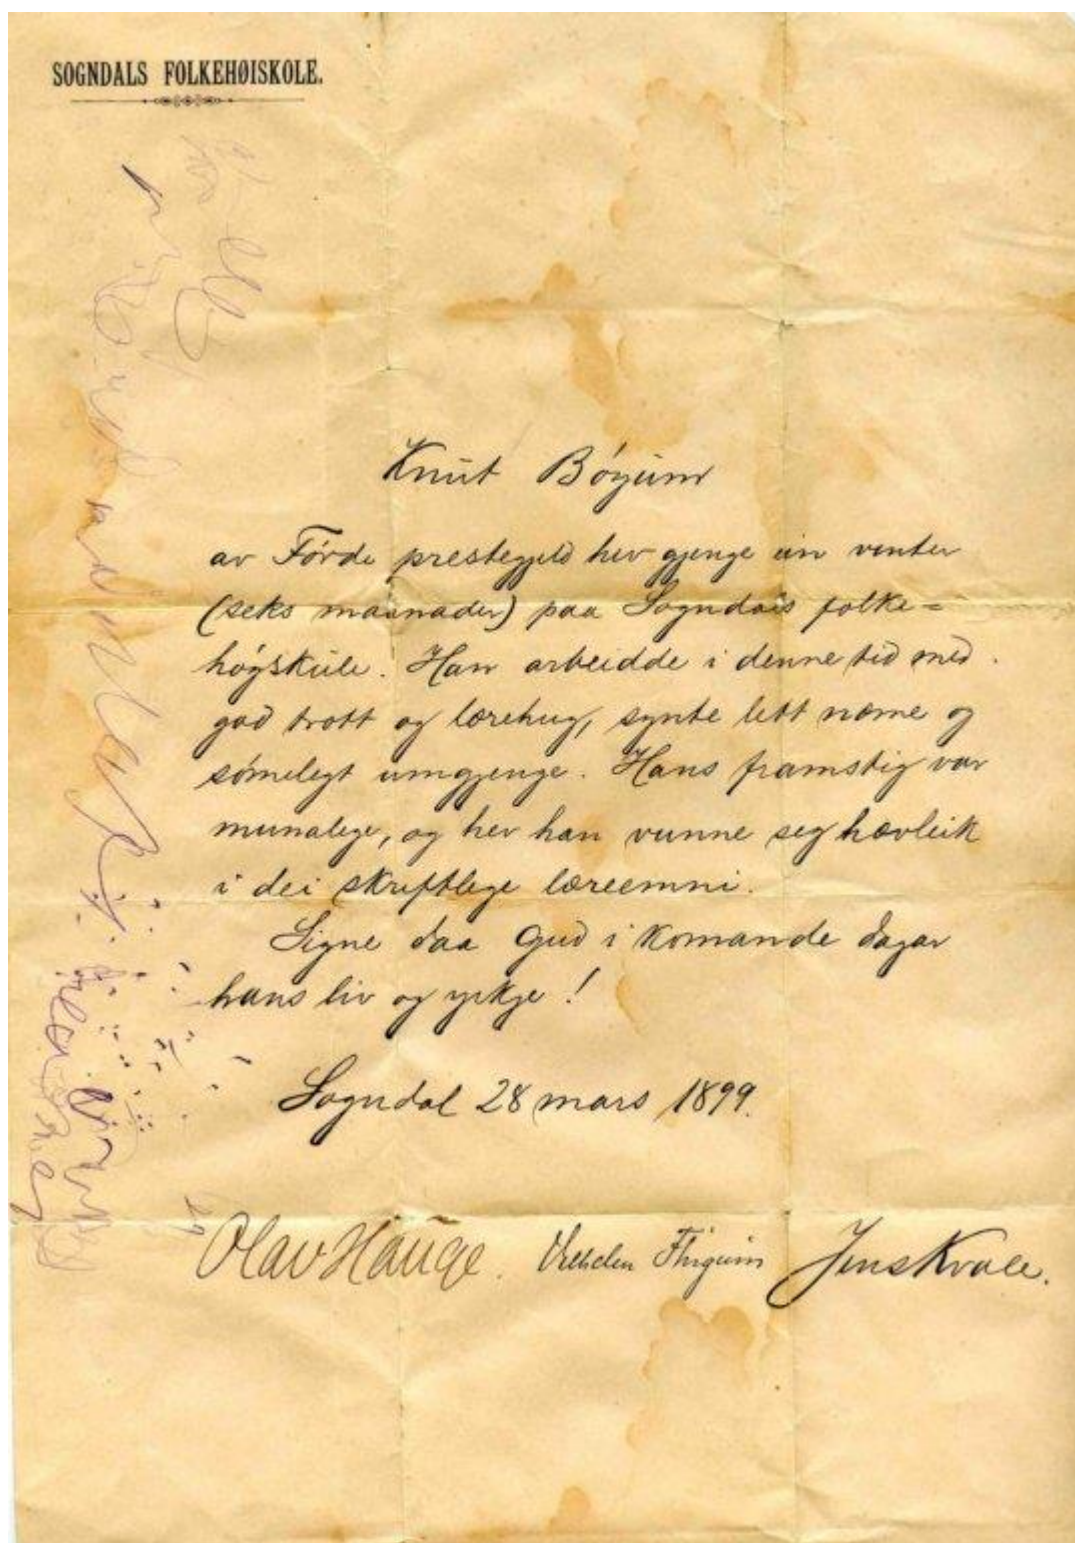 SOGNDALS FOLKEHØISKOLE.
Knut Bøyum
av Førde prestegjeld hev gjenge ein venter
(seks maanader) paa Sogndals folke=
høgskule. Han arbeidde i denne tid med
god trott og lærehug, synte lett næme og
sømelegt umgjenge. Hans framstig var
munalege, og hev han vunne seg hævleik
i dei skriftlege læreemni.
Signe daa Gud i komande dagar
hans liv og yrkje!
Sogndal 28 mars 1899.
Olav Hauge. Jens Kvale.